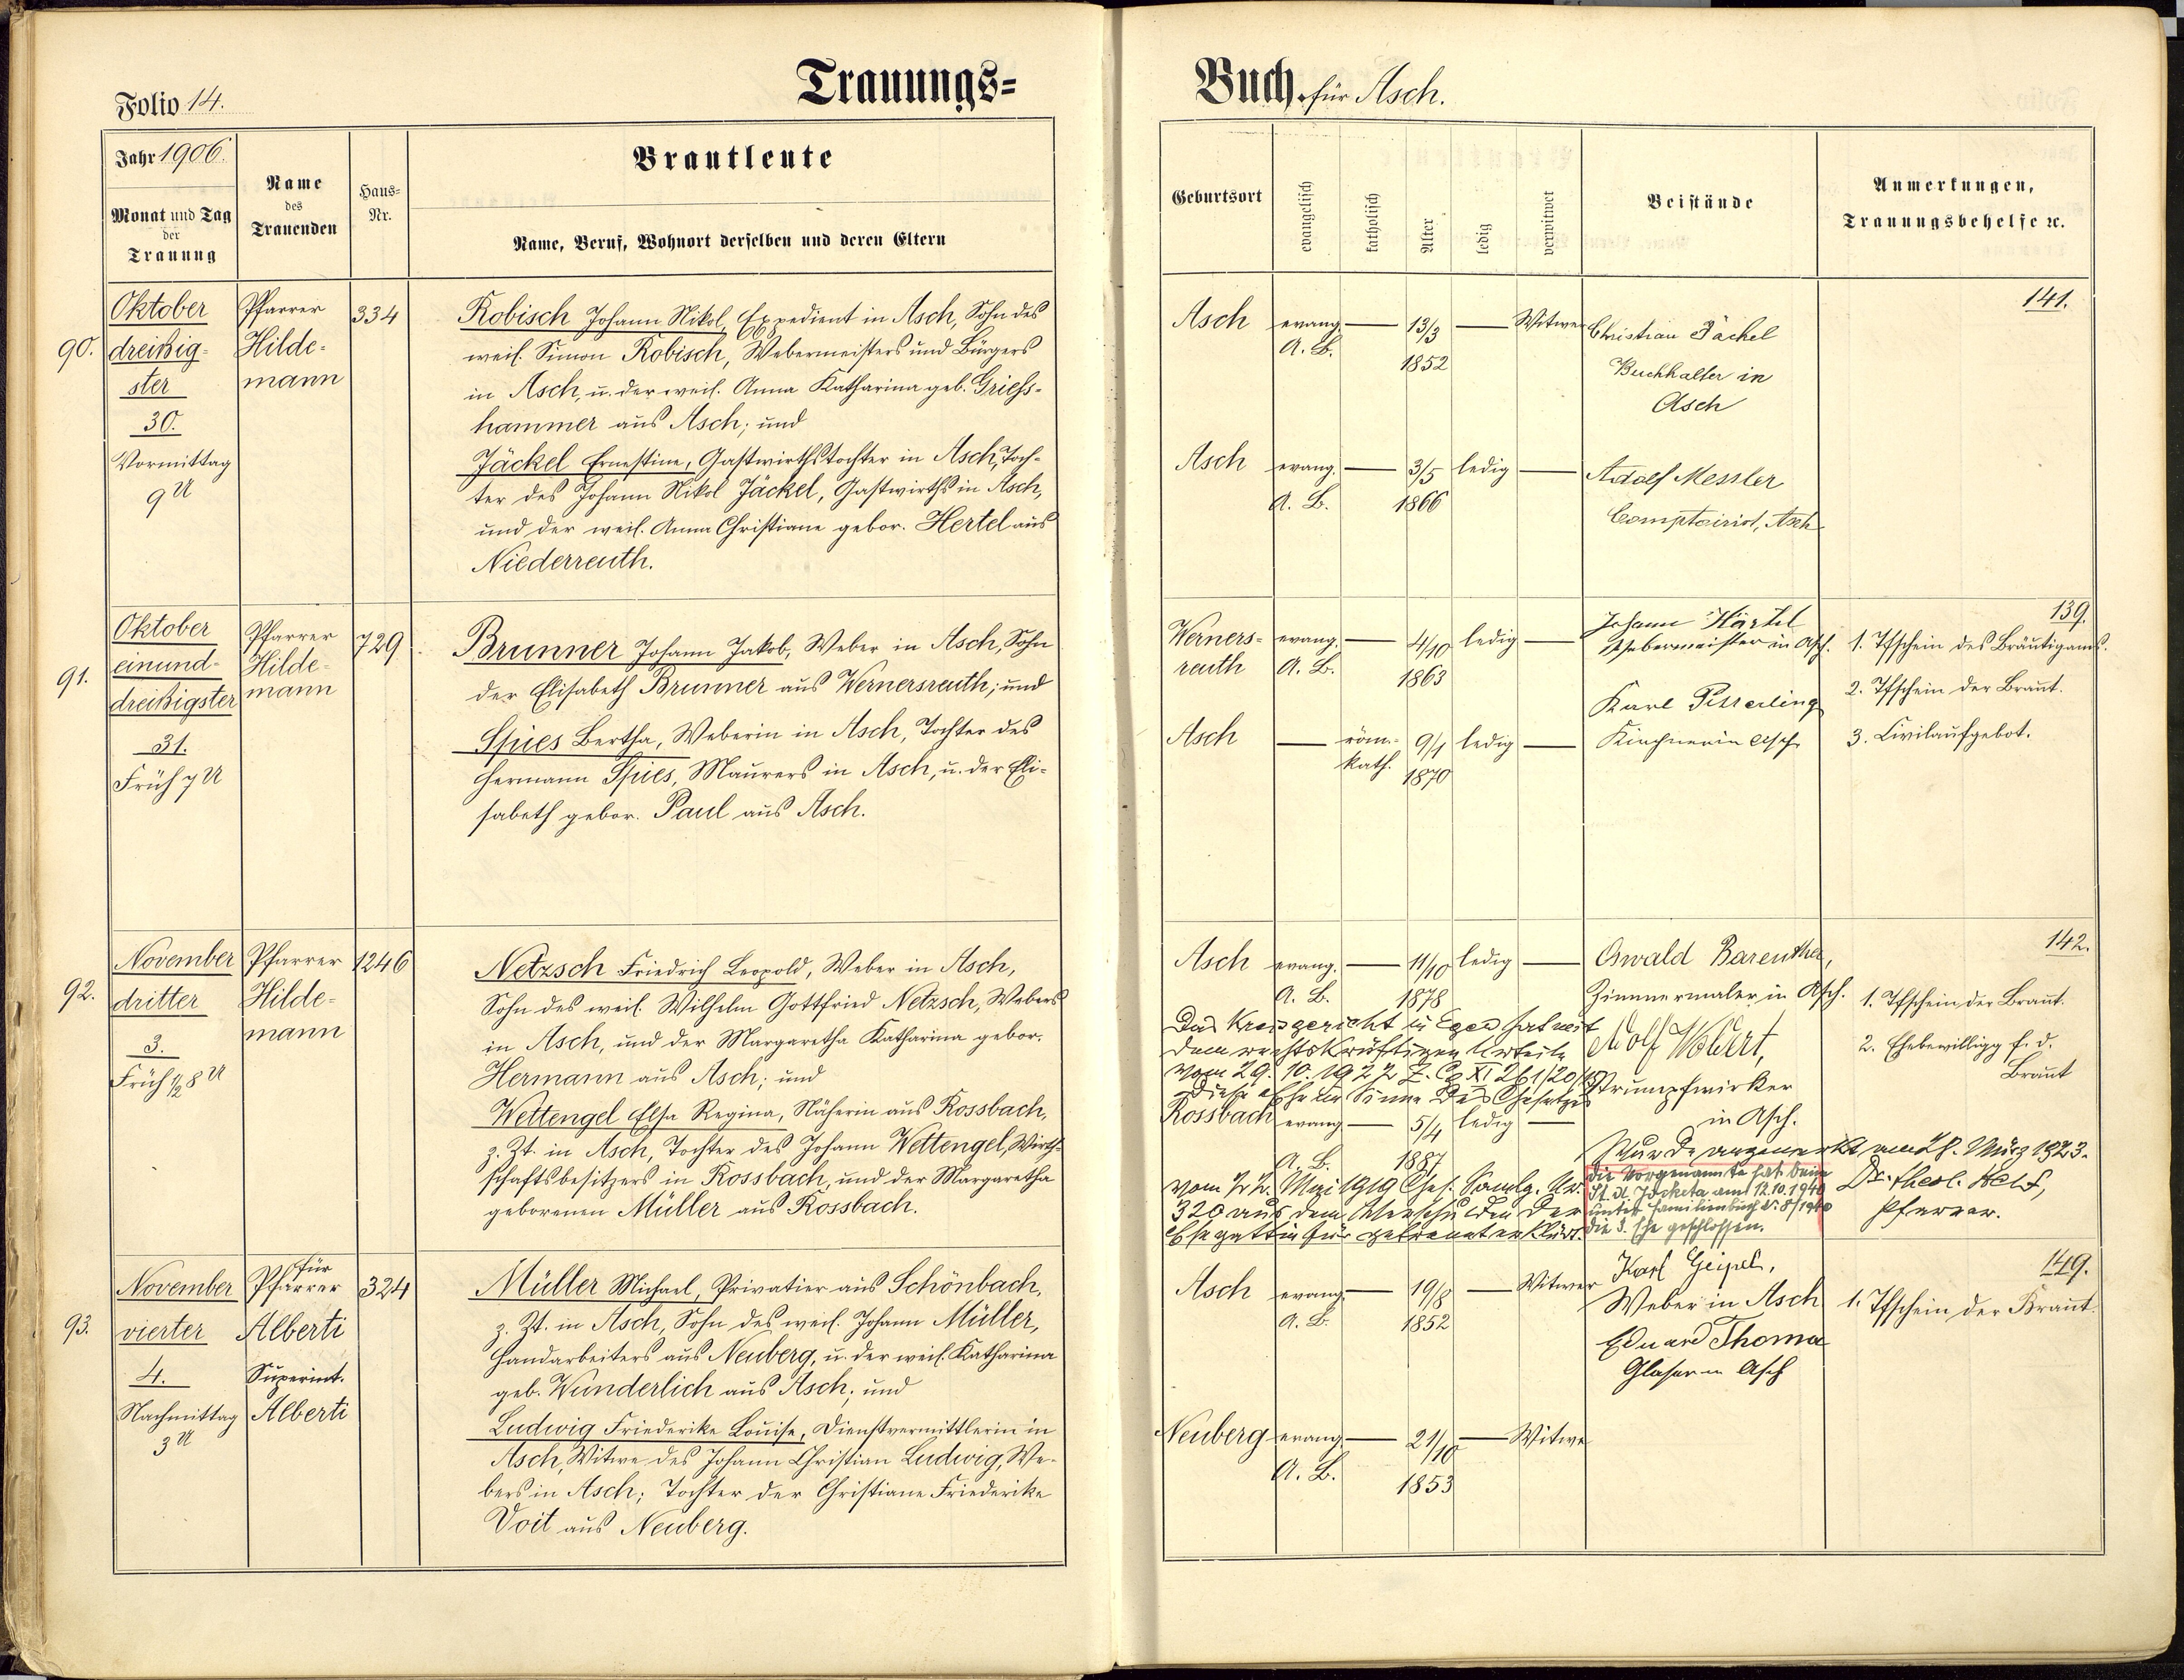 Folio 14.
Trauungs=
Jahr 1906.
Monat und Tag
der
Trauung
Name
des
Trauenden
Haus=
Nr.
Brautleute
Name, Beruf, Wohnort derselben und deren Eltern
90.
Oktober
dreißig-
ster
30.
Vormittag
9 U
Pfarrer
Hilde-
mann
334
Robisch Johann Nikol, Expedient in Asch, Sohn des
weil. Simon Robisch, Webermeisters und Bürgers
in Asch, u. der weil. Anna Katharina geb. Griess-
hammer aus Asch; und
Jäckel Ernestine, Gastwirthstochter in Asch, Toch-
ter des Johann Nikol Jäckel, Gastwirths in Asch,
und der weil. Anna Christiane gebor. Hertel aus
Niederreuth.
91.
Oktober
einund-
dreißigster
31.
Früh 7 U
Pfarrer
Hilde-
mann
729
Brunner Johann Jakob, Weber in Asch, Sohn
der Elisabeth Brunner aus Wernersreuth; und
Spies Bertha, Weberin in Asch, Tochter des
Hermann Spies, Maurers in Asch, u. der Eli-
sabeth gebor. Paul aus Asch.
92.
November
dritter
3.
Früh ½ 8 U
Pfarrer
Hilde-
mann
1246
Netzsch Friedrich Leopold, Weber in Asch,
Sohn des weil. Wilhelm Gottfried Netzsch, Webers
in Asch, und der Margaretha Katharina gebor.
Hermann aus Asch; und
Wettengel Elsa Regina, Näherin aus Rossbach,
z. Zt. in Asch, Tochter des Johann Wettengel, Wirth-
schaftsbesitzers in Rossbach, und der Margaretha
geborenen Müller aus Rossbach.
93.
November
vierter
4.
Nachmittag
3 U
für
Pfarrer
Alberti
Superint.
Alberti
324
Müller Michael, Privatier aus Schönbach,
z. Zt. in Asch, Sohn des weil. Johann Müller,
Handarbeiters aus Neuberg, u. der weil. Katharina
geb. Wunderlich aus Asch; und
Ludwig Friederike Louise, Dienstvermittlerin in
Asch, Witwe des Johann Christian Ludwig, We-
bers in Asch; Tochter der Christiane Friederike
Voit aus Neuberg.
Buch für Asch.
Geburtsort
evangelisch
katholisch
Alter
ledig
verwitwet
Beistände
Anmerkungen,
Trauungsbehelfe ꝛc.
Asch evang. — 13/3 — Witwer
A. B.
1852
Christian Jäckel
Buchhalter in
Asch
141.
Asch evang. — 3/5 ledig —
A. B. 1866
Adolf Messler
Comptoirist, Asch
Werners- evang. — 4/10 ledig —
reuth A. B. 1863
Johann Härtel
Webermeister in Asch.
139.
1. Tfschein des Bräutigams.
2. Tfschein der Braut.
3. Civilaufgebot.
Asch — röm.- 9/1 ledig —
kath. 1870
Karl
Kirchner in Asch
Asch evang. — 11/10 ledig —
A. B. 1878
Oswald Bareuther,
Zimmermaler in Asch.
142.
1. Tfschein der Braut.
2. Ehebewilligg f. d.
Braut
Das Kreisgericht in Eger hat mit
dem rechtskräftigen Urteile
vom 29. 10. 1922 Z. Cg XI 261/20/
diese Ehe im Sinne des Gesetzes
Adolf
Strumpfwirker
in Asch.
Rossbach evang. — 5/4 ledig —
A. B. 1887
vom 22. Mai 1919 Ges. Samlg. Nr.
320 aus dem Verschulden der
Ehegattin für getrennt erklärt.
Wurde angemerkt, am 28. März 1923.
Dr. theol.
Pfarrer.
Die Vorgenannte hat beim
St. A. am 12.10.1940
unter Familienbuch Nr. 8/1940
die 3. Ehe geschlossen.
Asch evang. — 19/8 — Witwer
A. B. 1852
Karl Geipel,
Weber in Asch
Eduard Thoma
Glaser in Asch
149.
1. Tfschein der Braut.
Neuberg evang. — 21/10 — Witwe
A. B.
1853